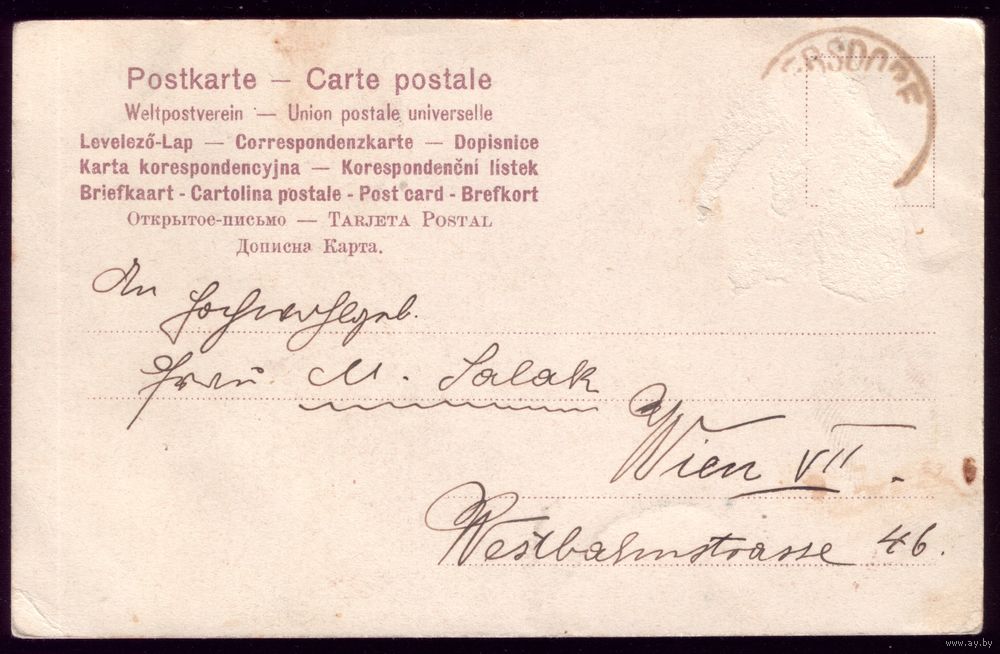 Postkarte — Carte postale
Weltpostverein — Union postale universelle
Levelező-Lap — Correspondenzkarte — Dopisnice
Karta korespondencyjna — Korespondenční lístek
Briefkaart - Cartolina postale - Post card - Brefkort
Открытое-письмо — TARJETA POSTAL
Дописна Карта.
An
Hochwohlgeb.
Frau M. Salak
Wien VII.
Westbahnstrasse 46.
www.ay.by